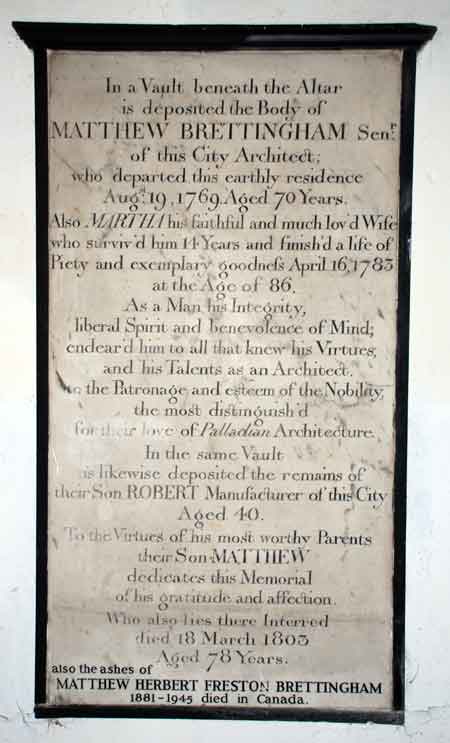 In a Vault beneath the Altar
is deposited the Body of
MATTHEW BRETTINGHAM Senr.
of this City Architect;
who departed this earthly residence
Augst. 19, 1769. Aged 70 Years.
Also MARTHA his faithful and much lov'd Wife
who surviv'd him 14 Years and finish'd a life of
Piety and exemplary goodneſs April 16, 1783
at the Age of 86.
As a Man his Integrity,
liberal Spirit and benevolence of Mind;
endear'd him to all that knew his Virtues;
and his Talents as an Architect,
to the Patronage and esteem of the Nobility,
the most distinguish'd
for their love of Palladian Architecture.
In the same Vault
is likewise deposited the remains of
their Son ROBERT Manufacturer of this City
Aged 40.
To the Virtues of his most worthy Parents
their Son MATTHEW
dedicates this Memorial
of his gratitude and affection.
Who also lies there Interred
died 18 March 1803
Aged 78 Years.
also the ashes of
MATTHEW HERBERT FRESTON BRETTINGHAM
1881-1945 died in Canada.